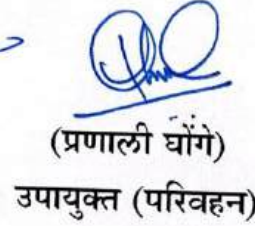 (प्रणाली घोंगे)
उपायुक्त (परिवहन)